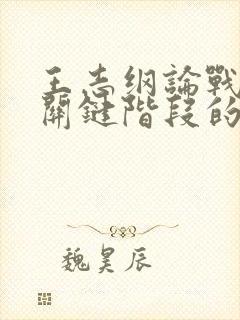 王志纲論戰
關鍵階段的
魏昊辰